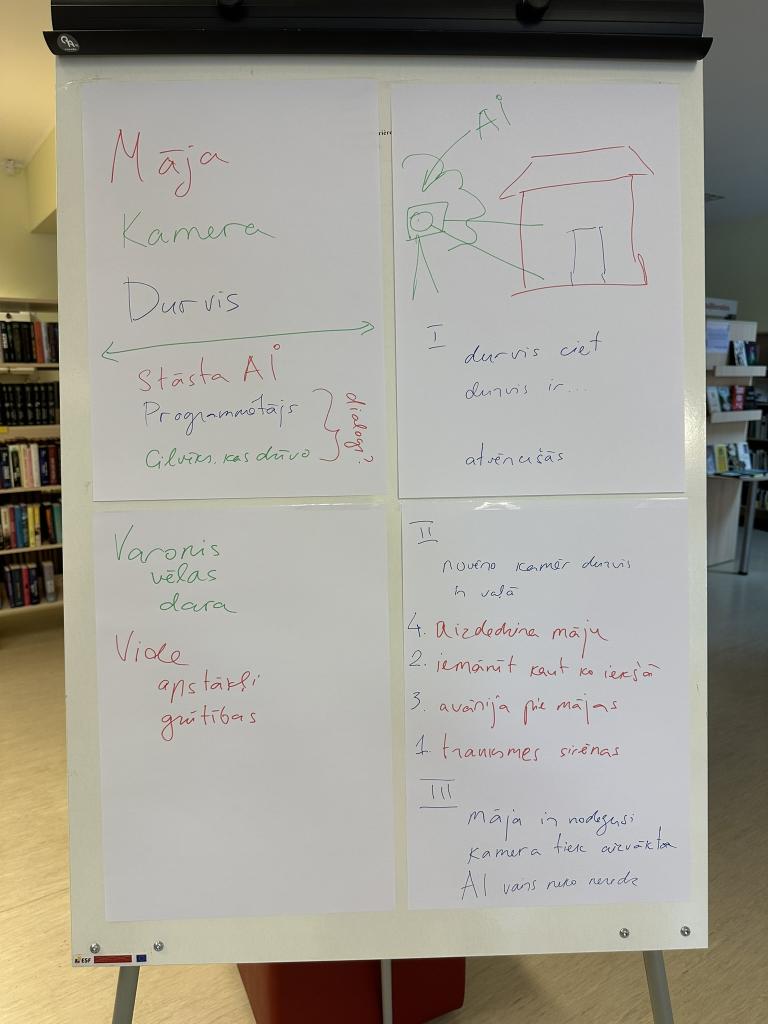 Māja
Kamera
Durvis
Stāsta AI
Programmētājs
Cilvēks, kas dzīvo
dialogs?
AI
I
durvis ciet
durvis ir...
atvērušās
Varonis
vēlas
dara
Vide
apstākļi
grūtības
II
novēro kamēr durvis
ir vaļā
4. aizdedzina māju
2. iemānīt kaut ko iekšā
3. avārija pie mājas
1. trauksmes sirēnas
III
Māja ir nodegusi
Kamera tiek aizvākta
AI vairs neko neredz
ESF